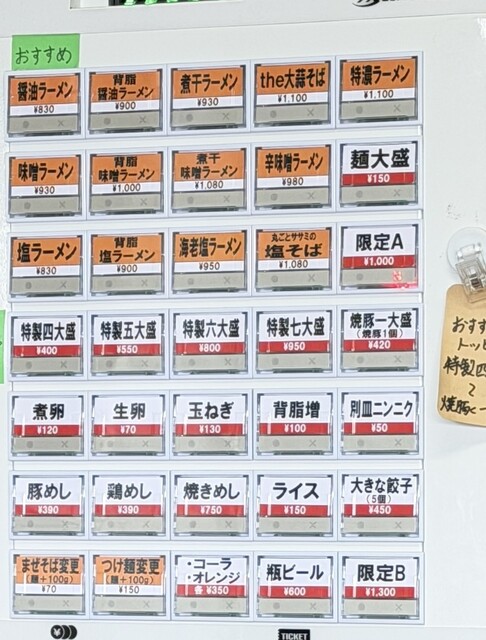 おすすめ
醤油ラーメン
¥830
背脂
醤油ラーメン
¥900
煮干ラーメン
¥930
the大蒜そば
¥1,100
特濃ラーメン
¥1,100
味噌ラーメン
¥930
背脂
味噌ラーメン
¥1,000
煮干
味噌ラーメン
¥1,080
辛味噌ラーメン
¥980
麺大盛
¥150
塩ラーメン
¥830
背脂
塩ラーメン
¥900
海老塩ラーメン
¥950
丸ごとササミの
塩そば
¥1,080
限定A
¥1,000
特製四大盛
¥400
特製五大盛
¥550
特製六大盛
¥800
特製七大盛
¥950
焼豚一大盛
(焼豚1個)
¥420
煮卵
¥120
生卵
¥70
玉ねぎ
¥130
背脂増
¥100
別皿ニンニク
¥50
豚めし
¥390
鶏めし
¥390
焼きめし
¥750
ライス
¥150
大きな餃子
(5個)
¥450
まぜそば変更
(麺+100g)
¥70
つけ麺変更
(麺+100g)
¥150
・コーラ
・オレンジ
各 ¥350
瓶ビール
¥600
限定B
¥1,300
おすす
トッピ
特製四
TICKET